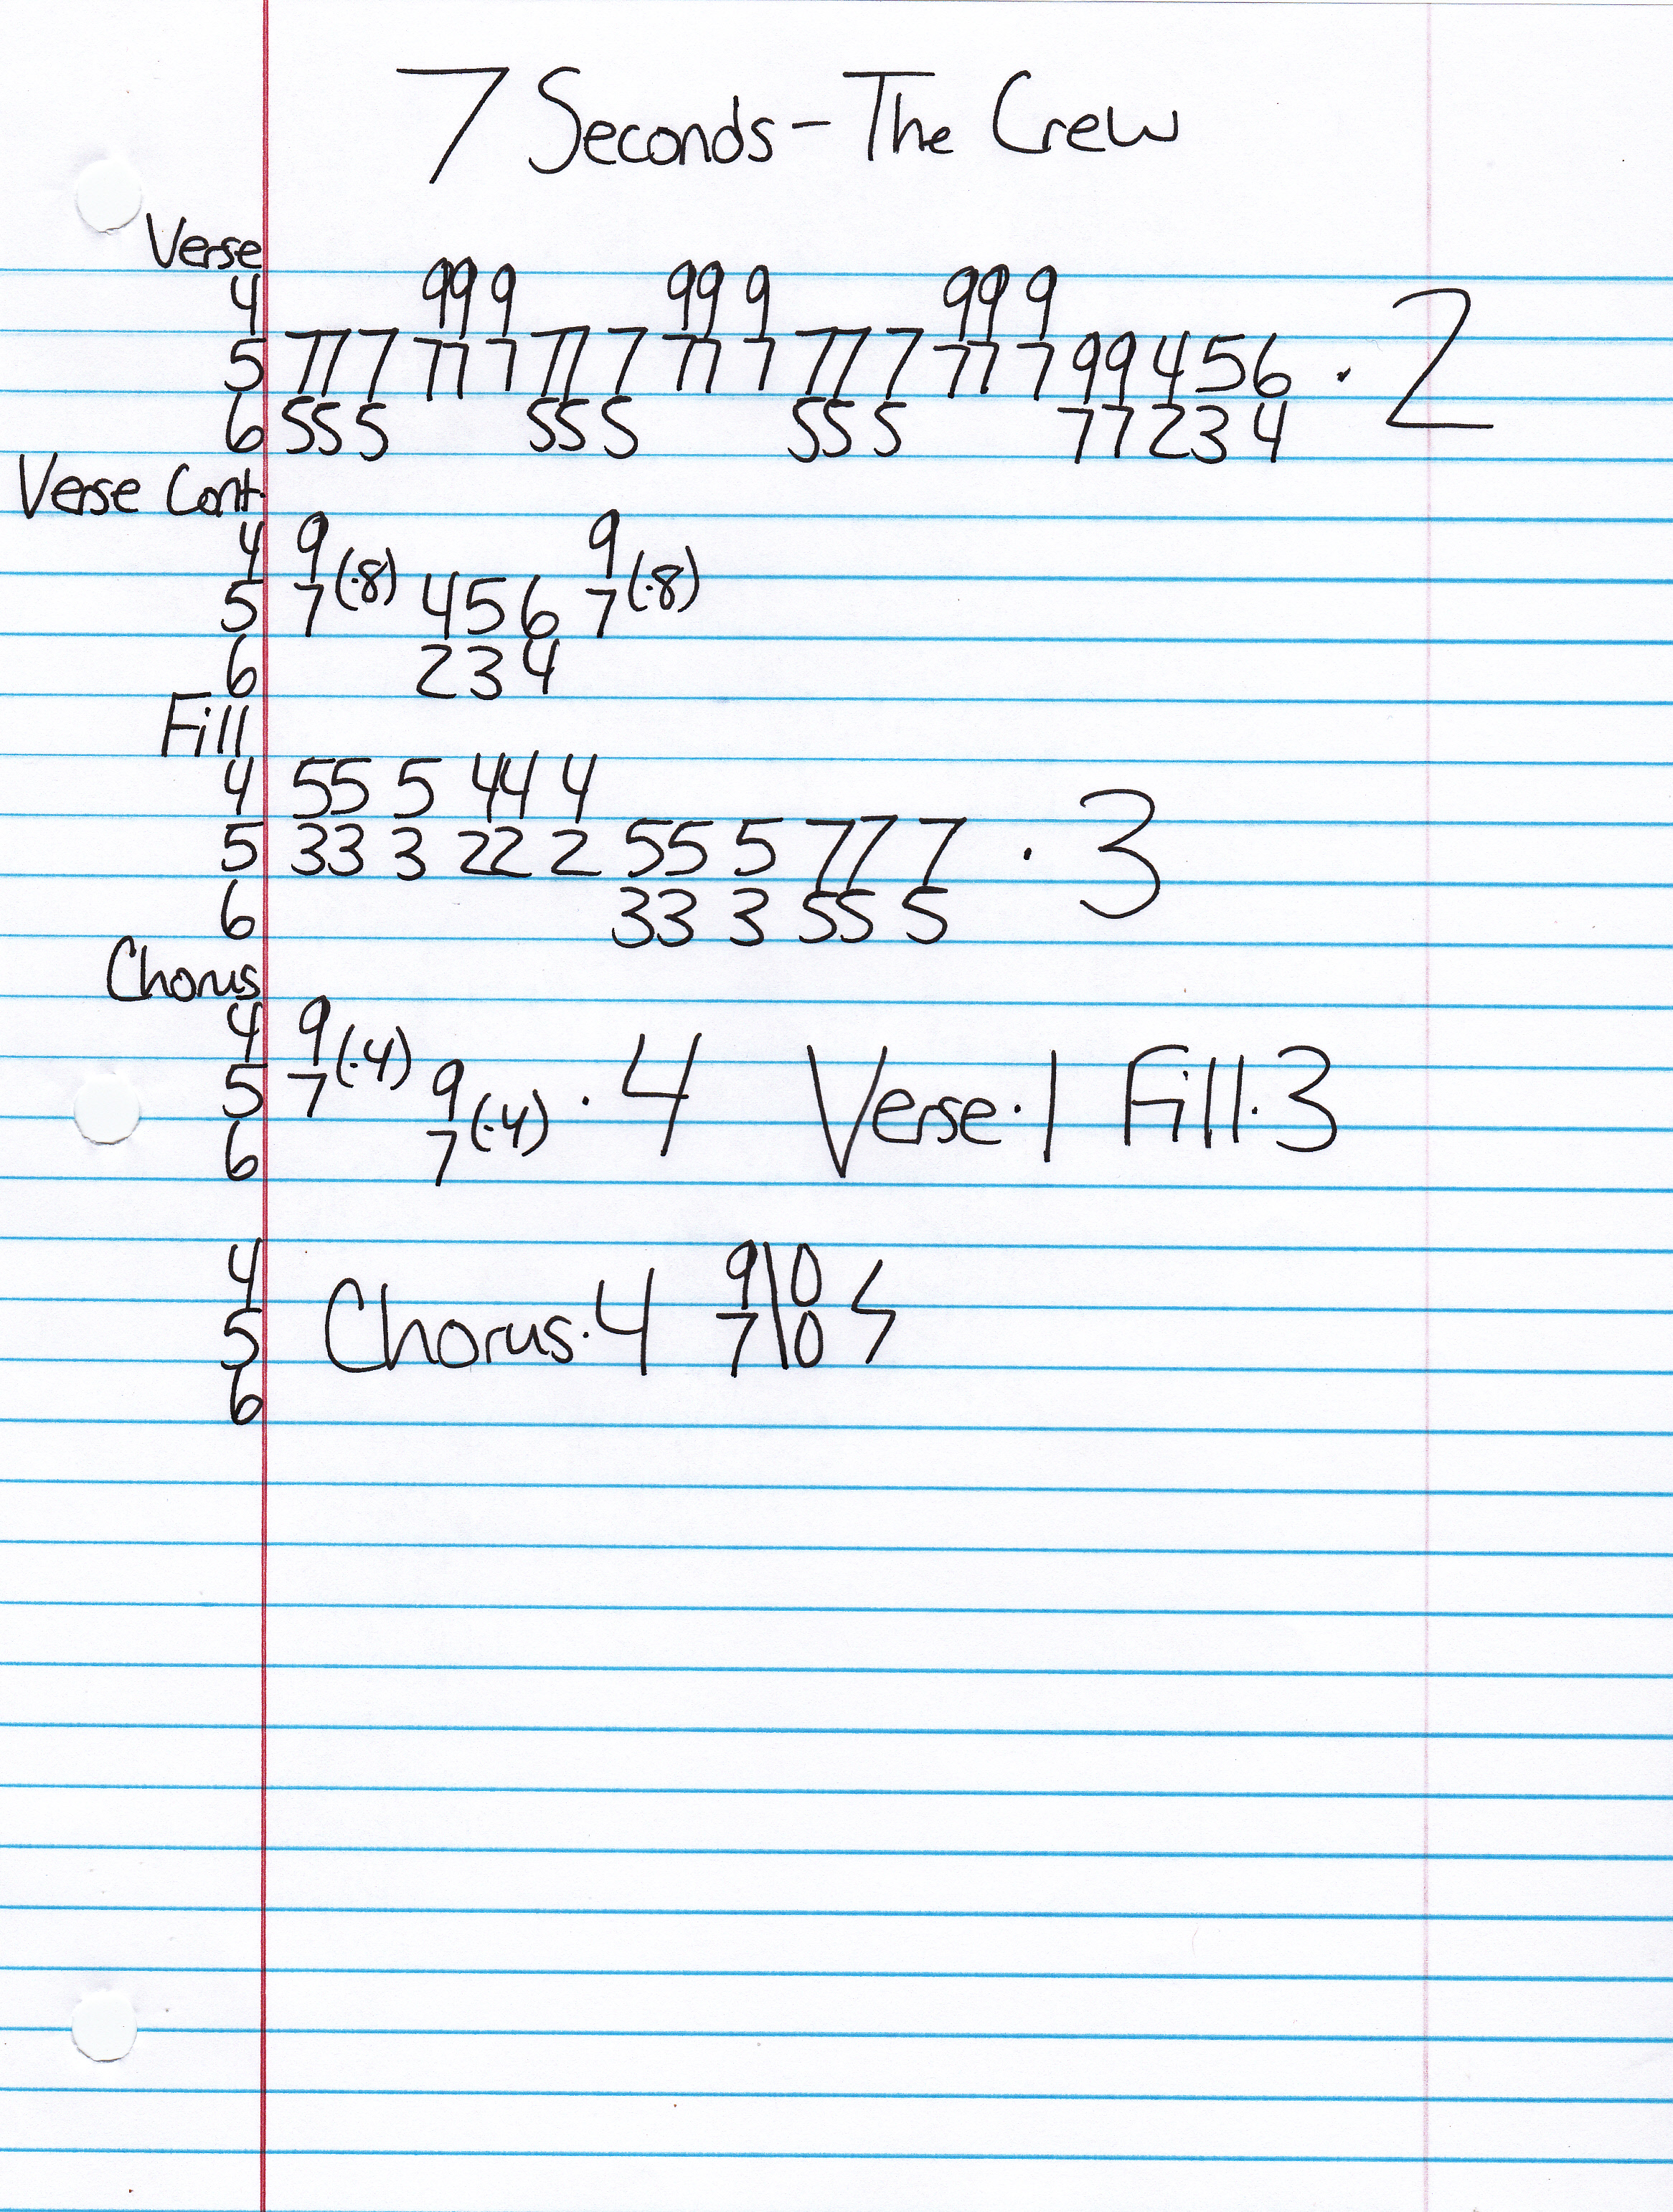 7 Seconds - The Crew
Verse
4 99 9 99 9 99 9
5 77 7 77 7 77 7 77 7 77 7 77 7 99 4 5 6 · 2
6 55 5 55 5 55 5 77 2 3 4
Verse Cont.
4 9 9
5 7 (·8) 4 5 6 7 (·8)
6 2 3 4
Fill
4 55 5 44 4
5 33 3 22 2 55 5 77 7 · 3
6 33 3 55 5
Chorus
4 9
5 7 (·4) 9 · 4 Verse·1 Fill·3
6 7 (·4)
4 9\0
5 Chorus·4 7\0
6